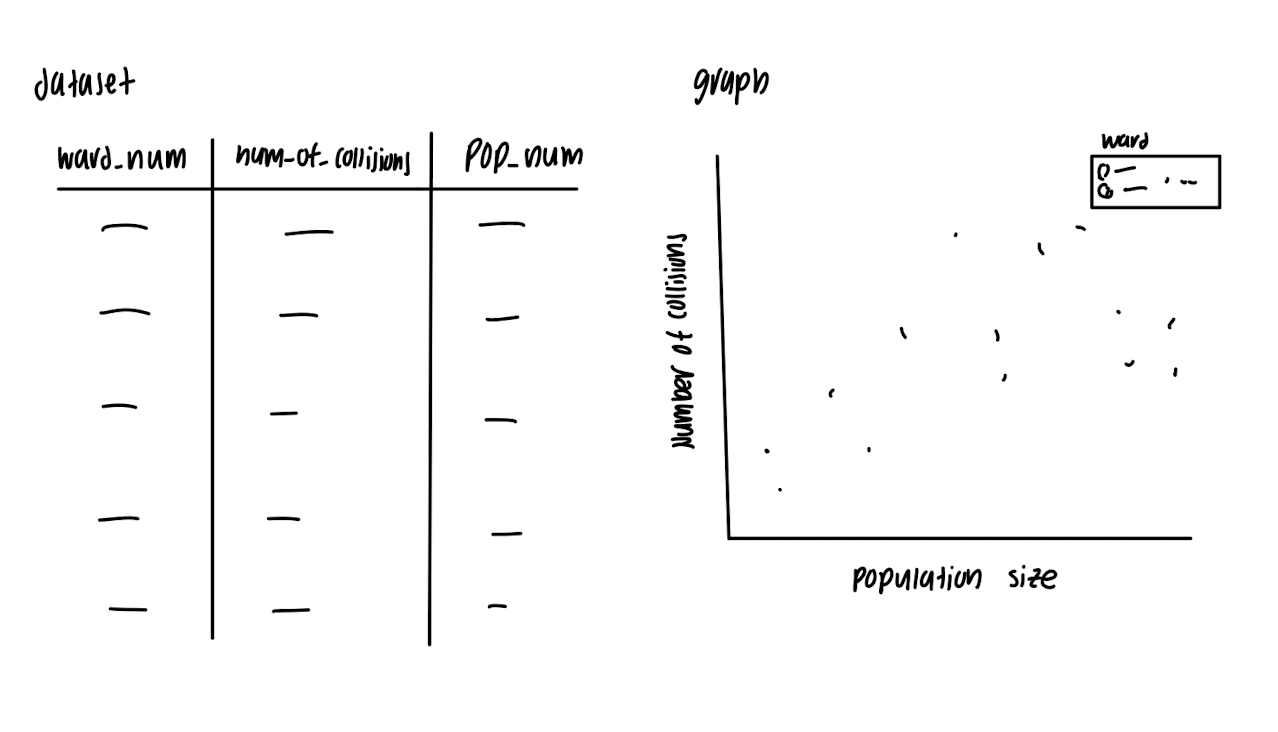 dataset
ward_num num_of_collisions Pop_num
graph
ward
Number of collisions
population size